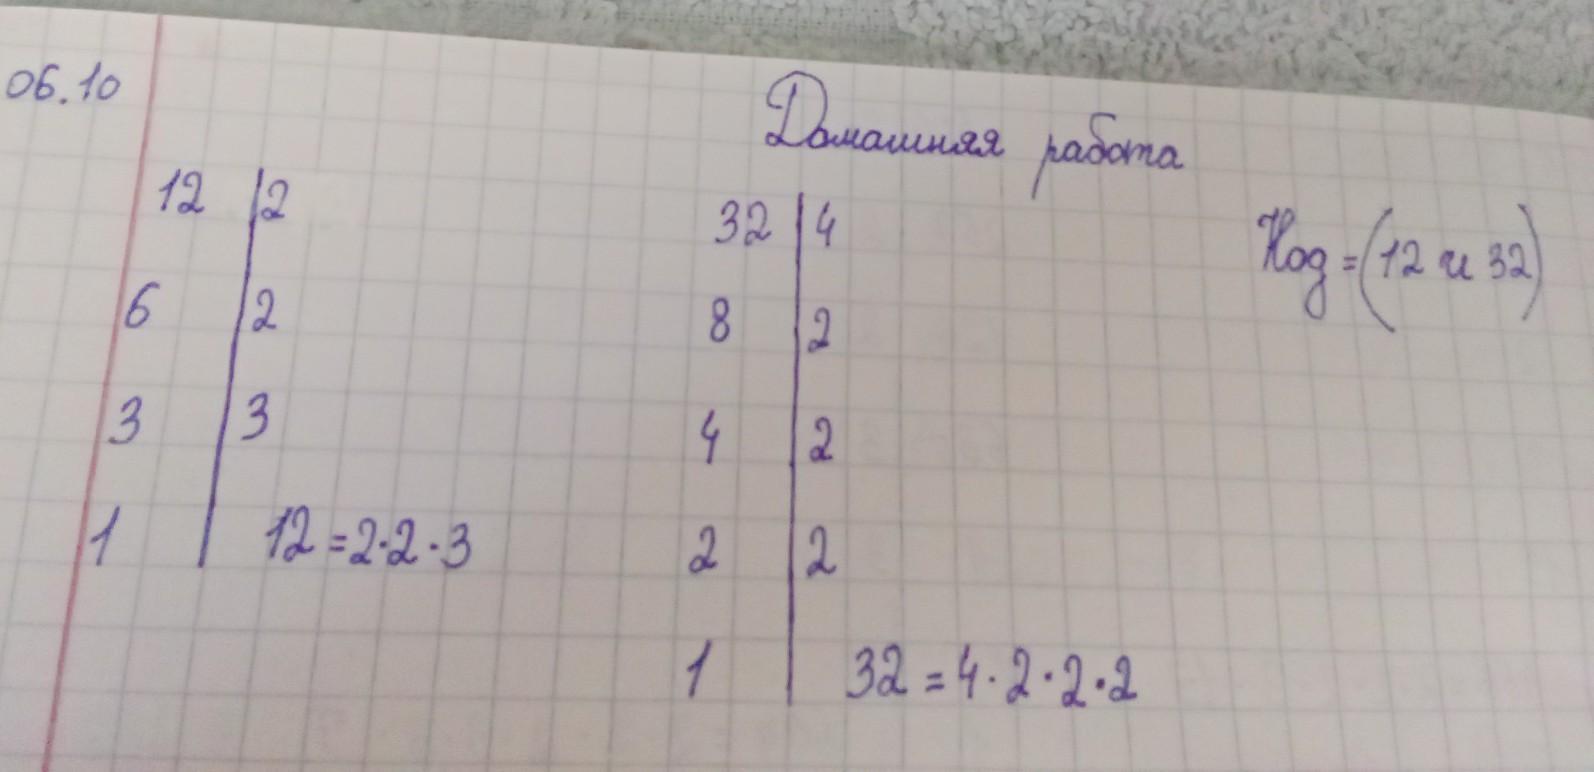 06.10
Домашняя работа
12 | 2
6 | 2
3 | 3
1 |
12 = 2·2·3
32 | 4
8 | 2
4 | 2
2 | 2
1 |
32 = 4·2·2·2
Нод = (12 и 32)